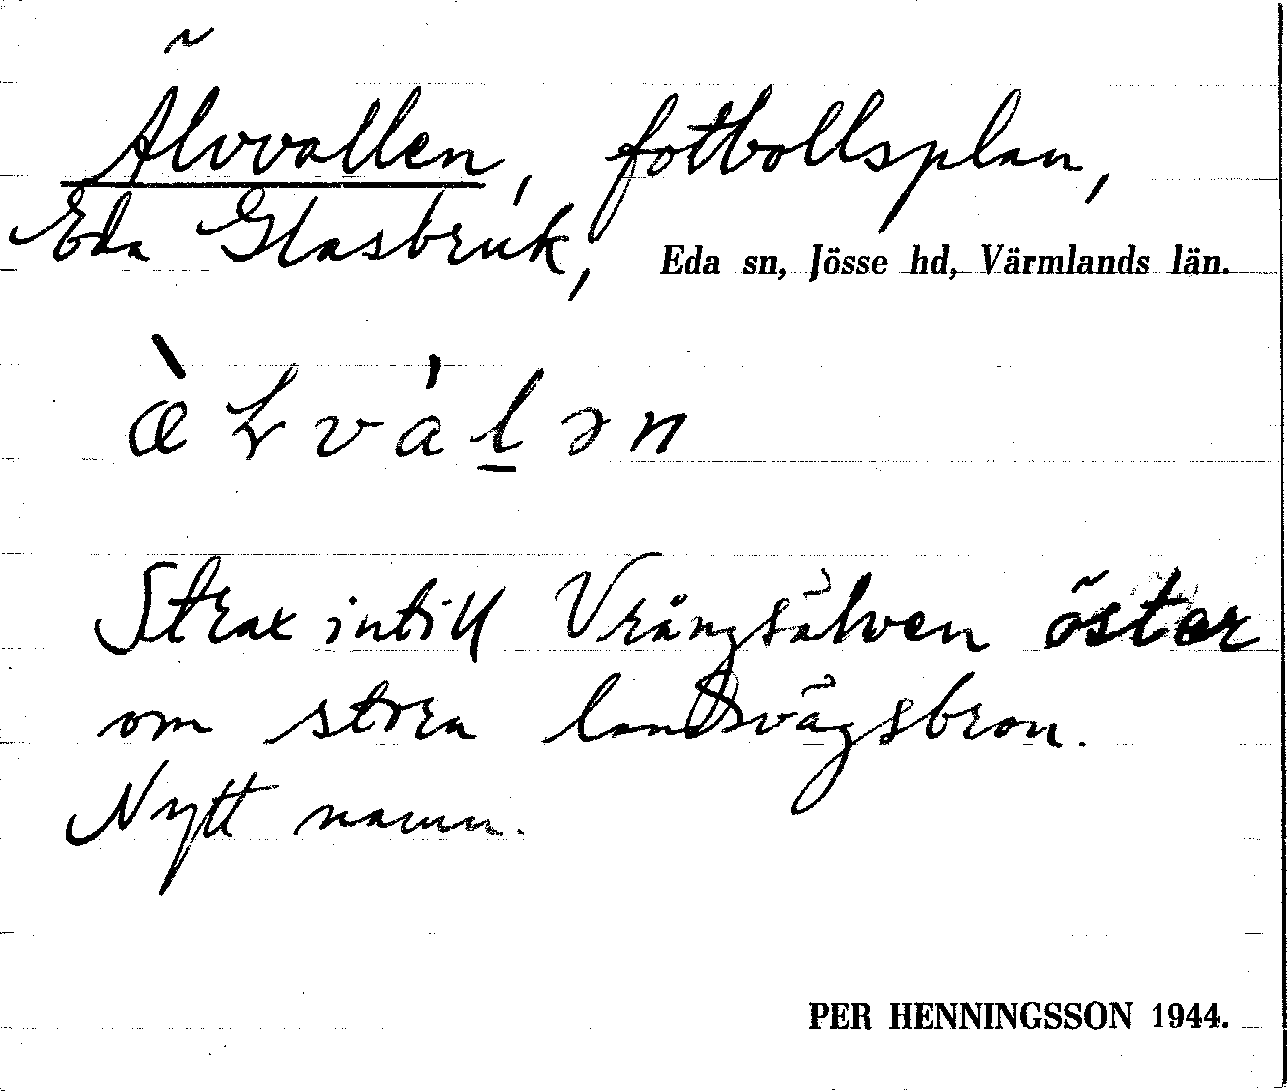 Älvvallen, fotbollsplan,
Eda Glasbruk, Eda sn, Jösse hd, Värmlands län.
Strax intill Vrångsälven öster
om stora landsvägsbron.
Nytt namn.
PER HENNINGSSON 1944.